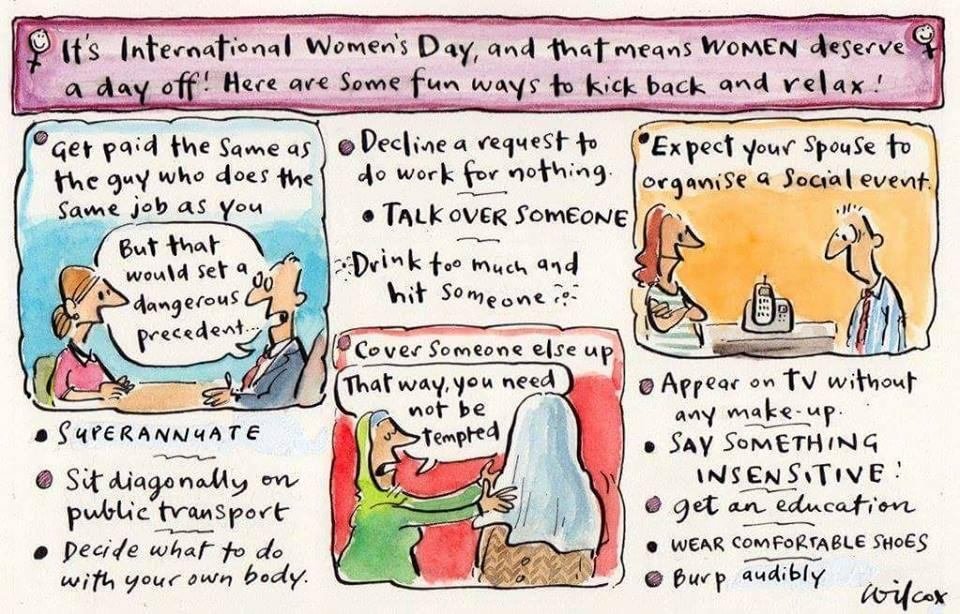 It's International Women's Day, and that means WOMEN deserve
a day off! Here are some fun ways to kick back and relax!
• get paid the same as
the guy who does the
same job as you
But that
would set a
dangerous
precedent...
• SUPERANNUATE
• Sit diagonally on
public transport
• Decide what to do
with your own body.
• Decline a request to
do work for nothing.
• TALK OVER SOMEONE
Drink too much and
hit someone
• Cover someone else up
That way, you need
not be
tempted
• Expect your spouse to
organise a social event.
• Appear on TV without
any make-up.
• SAY SOMETHING
INSENSITIVE!
• get an education
• WEAR COMFORTABLE SHOES
• Burp audibly
Wilcox